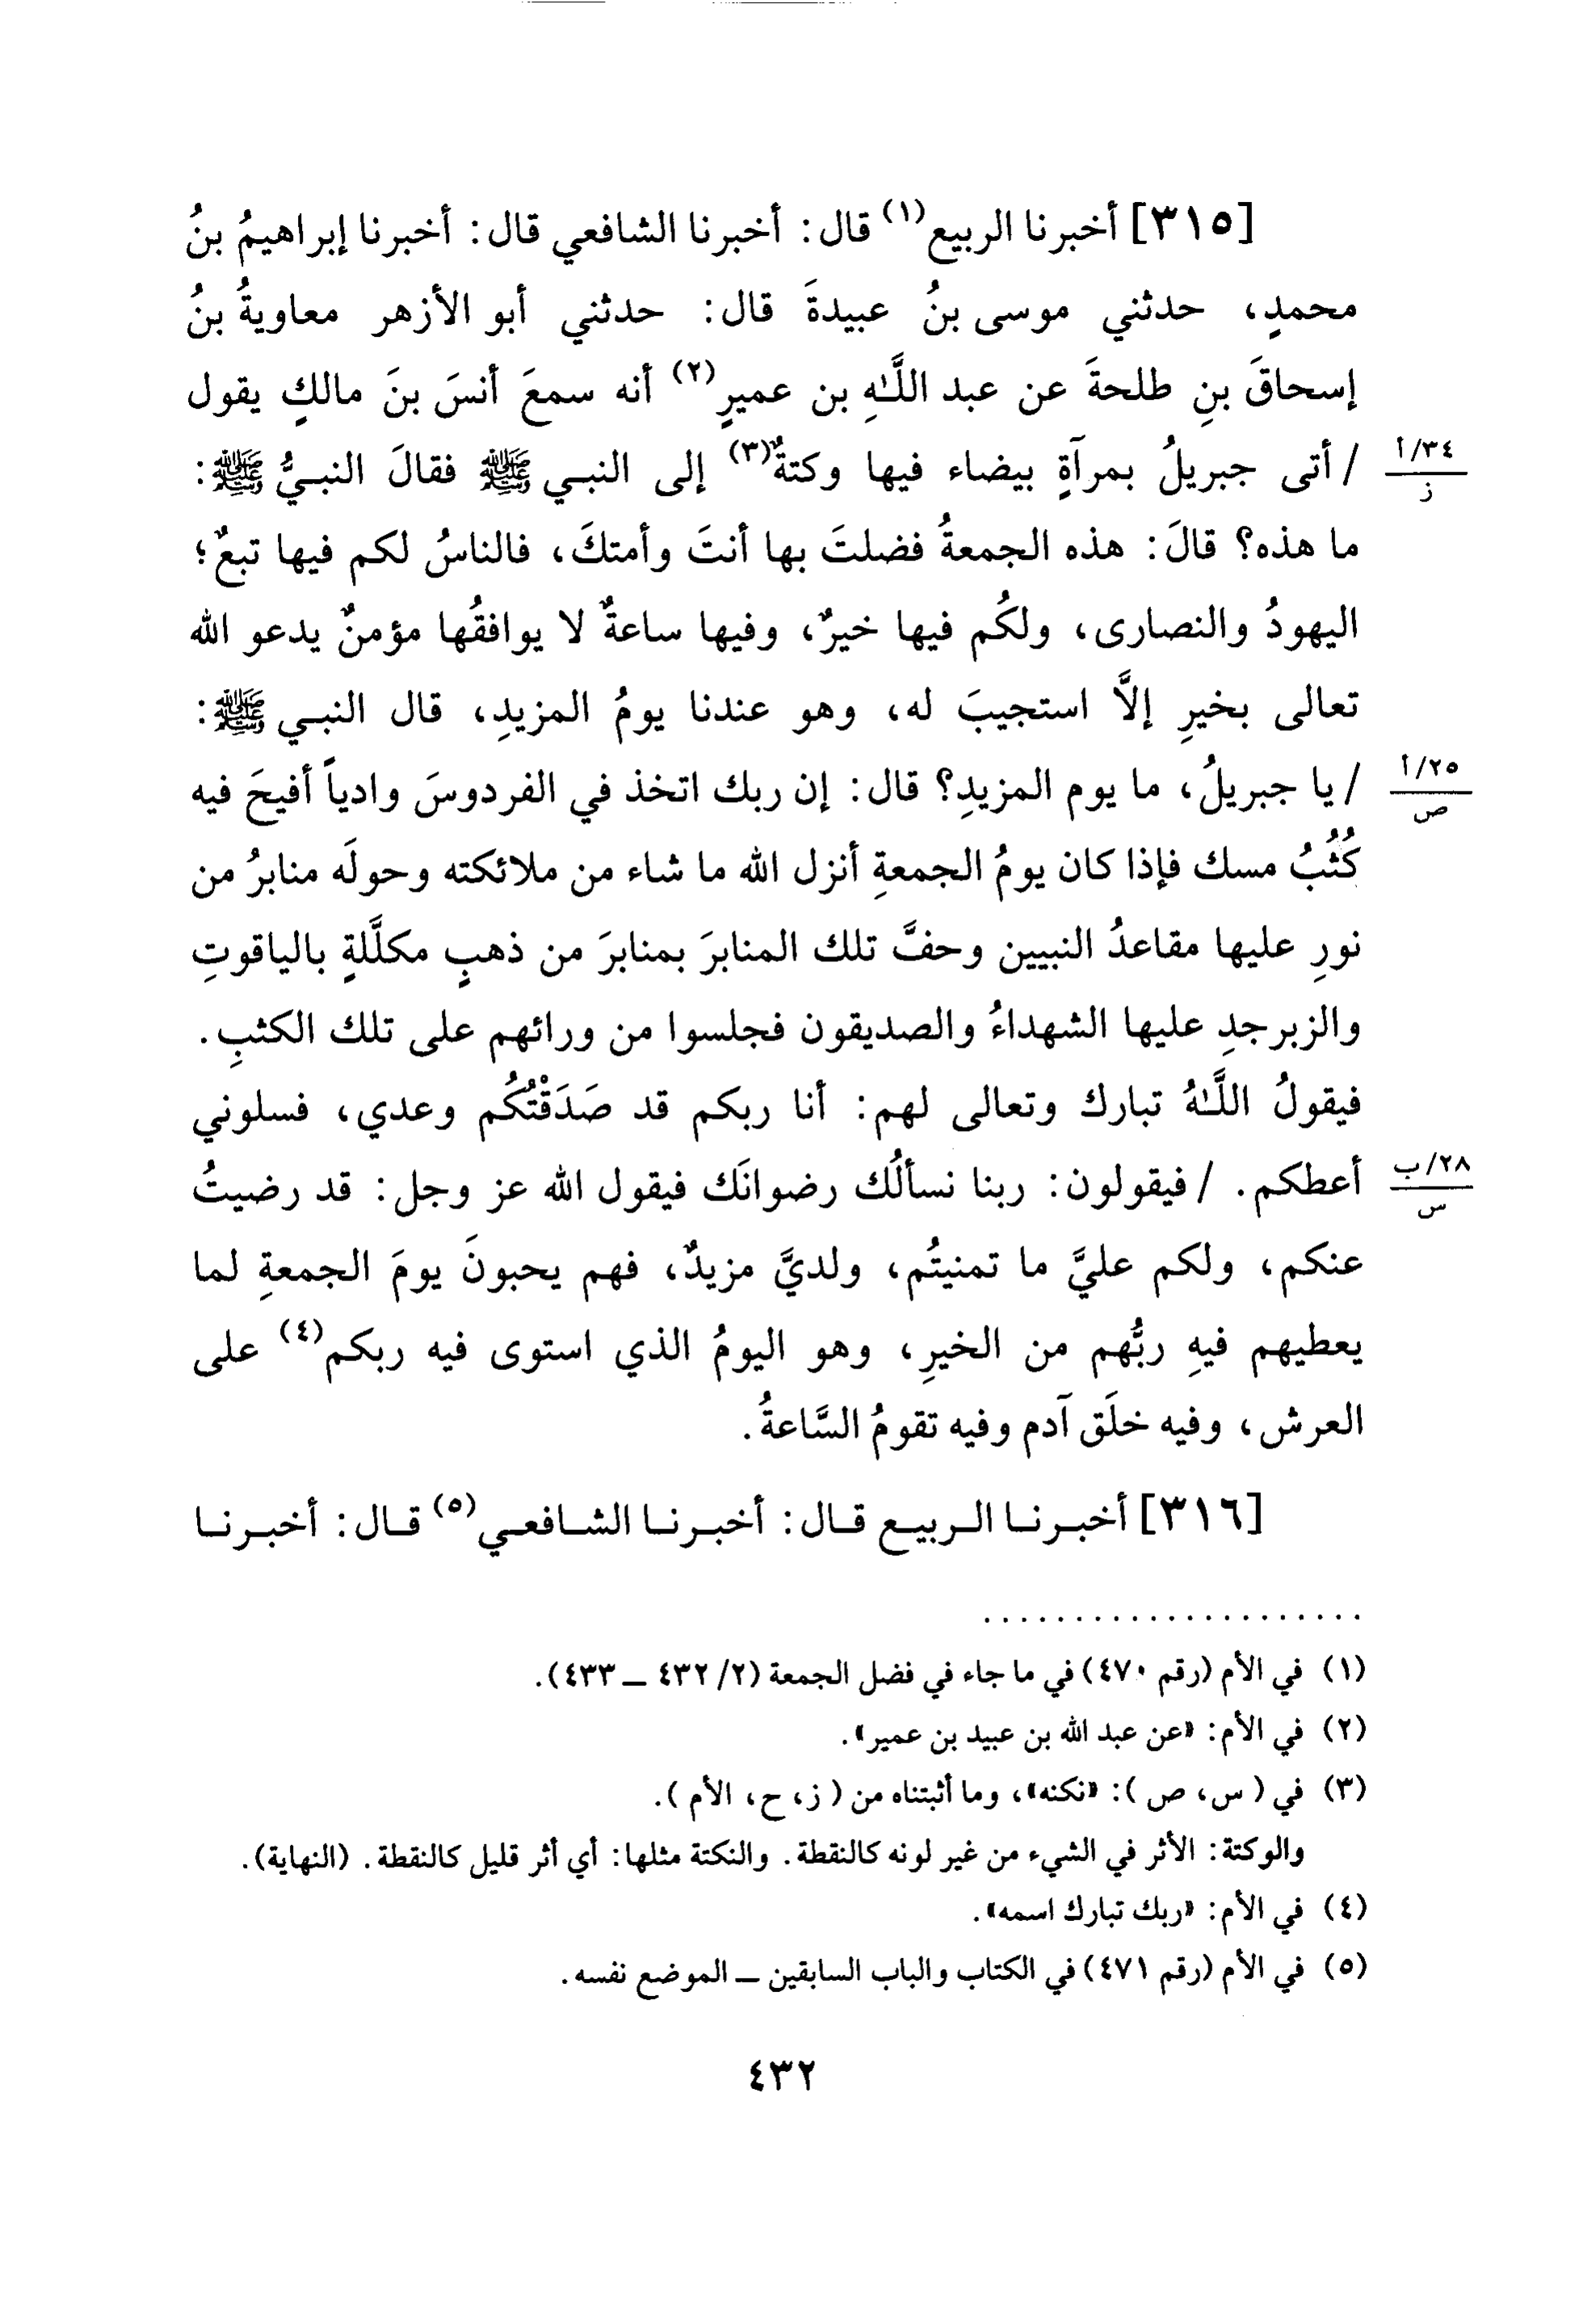 [٣١٥] أخبرنا الربيع(١) قال: أخبرنا الشافعي قال: أخبرنا إبراهيمُ بنُ
محمدٍ، حدثني موسى بنُ عبيدةَ قال: حدثني أبو الأزهر معاويةُ بنُ
إسحاقَ بنِ طلحةَ عن عبد اللَّهِ بن عميرٍ(٢) أنه سمعَ أنسَ بنَ مالكٍ يقول
/ أتى جبريلُ بمرآةٍ بيضاء فيها وكتةٌ(٣) إلى النبي ﷺ فقالَ النبيُّ ﷺ:
٣٤/أ
ز
ما هذه؟ قالَ: هذه الجمعةُ فضلتَ بها أنتَ وأمتكَ، فالناسُ لكم فيها تبعٌ؛
اليهودُ والنصارى، ولكُم فيها خيرٌ، وفيها ساعةٌ لا يوافقُها مؤمنٌ يدعو الله
تعالى بخيرِ إلاَّ استجيبَ له، وهو عندنا يومُ المزيدِ، قال النبي ﷺ:
/ يا جبريلُ، ما يوم المزيدِ؟ قال: إن ربك اتخذ في الفردوسَ وادياً أفيحَ فيه
٢٥/أ
ص
كُثُبُ مسك فإذا كان يومُ الجمعةِ أنزل الله ما شاء من ملائكته وحولَه منابرُ من
نورِ عليها مقاعدُ النبيين وحفَّ تلك المنابرَ بمنابرَ من ذهبٍ مكلَّلةٍ بالياقوتِ
والزبرجدِ عليها الشهداءُ والصديقون فجلسوا من ورائهم على تلك الكثبِ.
فيقولُ اللَّهُ تبارك وتعالى لهم: أنا ربكم قد صَدَقْتُكُم وعدي، فسلوني
أعطكم. / فيقولون: ربنا نسألُك رضوانَك فيقول الله عز وجل: قد رضيتُ
٢٨/ب
س
عنكم، ولكم عليَّ ما تمنيتُم، ولديَّ مزيدٌ، فهم يحبونَ يومَ الجمعةِ لما
يعطيهم فيهِ ربُّهم من الخيرِ، وهو اليومُ الذي استوى فيه ربكم(٤) على
العرش، وفيه خلَق آدم وفيه تقومُ السَّاعةُ.
[٣١٦] أخبرنا الربيع قال: أخبرنا الشافعي(٥) قال: أخبرنا
. . . . . . . . . . . . . . . . . . . . .
(١) في الأم (رقم ٤٧٠) في ما جاء في فضل الجمعة (٢/ ٤٣٢ – ٤٣٣).
(٢) في الأم: «عن عبد الله بن عبيد بن عمير».
(٣) في (س، ص): «نكنه»، وما أثبتناه من (ز، ح، الأم).
والوكتة: الأثر في الشيء من غير لونه كالنقطة. والنكتة مثلها: أي أثر قليل كالنقطة. (النهاية).
(٤) في الأم: «ربك تبارك اسمه».
(٥) في الأم (رقم ٤٧١) في الكتاب والباب السابقين – الموضع نفسه.
٤٣٢